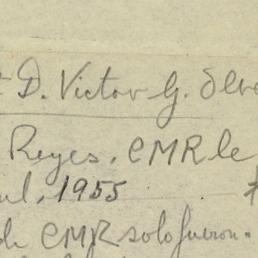 D. Victor G. Olve
Reyes, CMR le
ul, 1955
de CMR solo fueron.